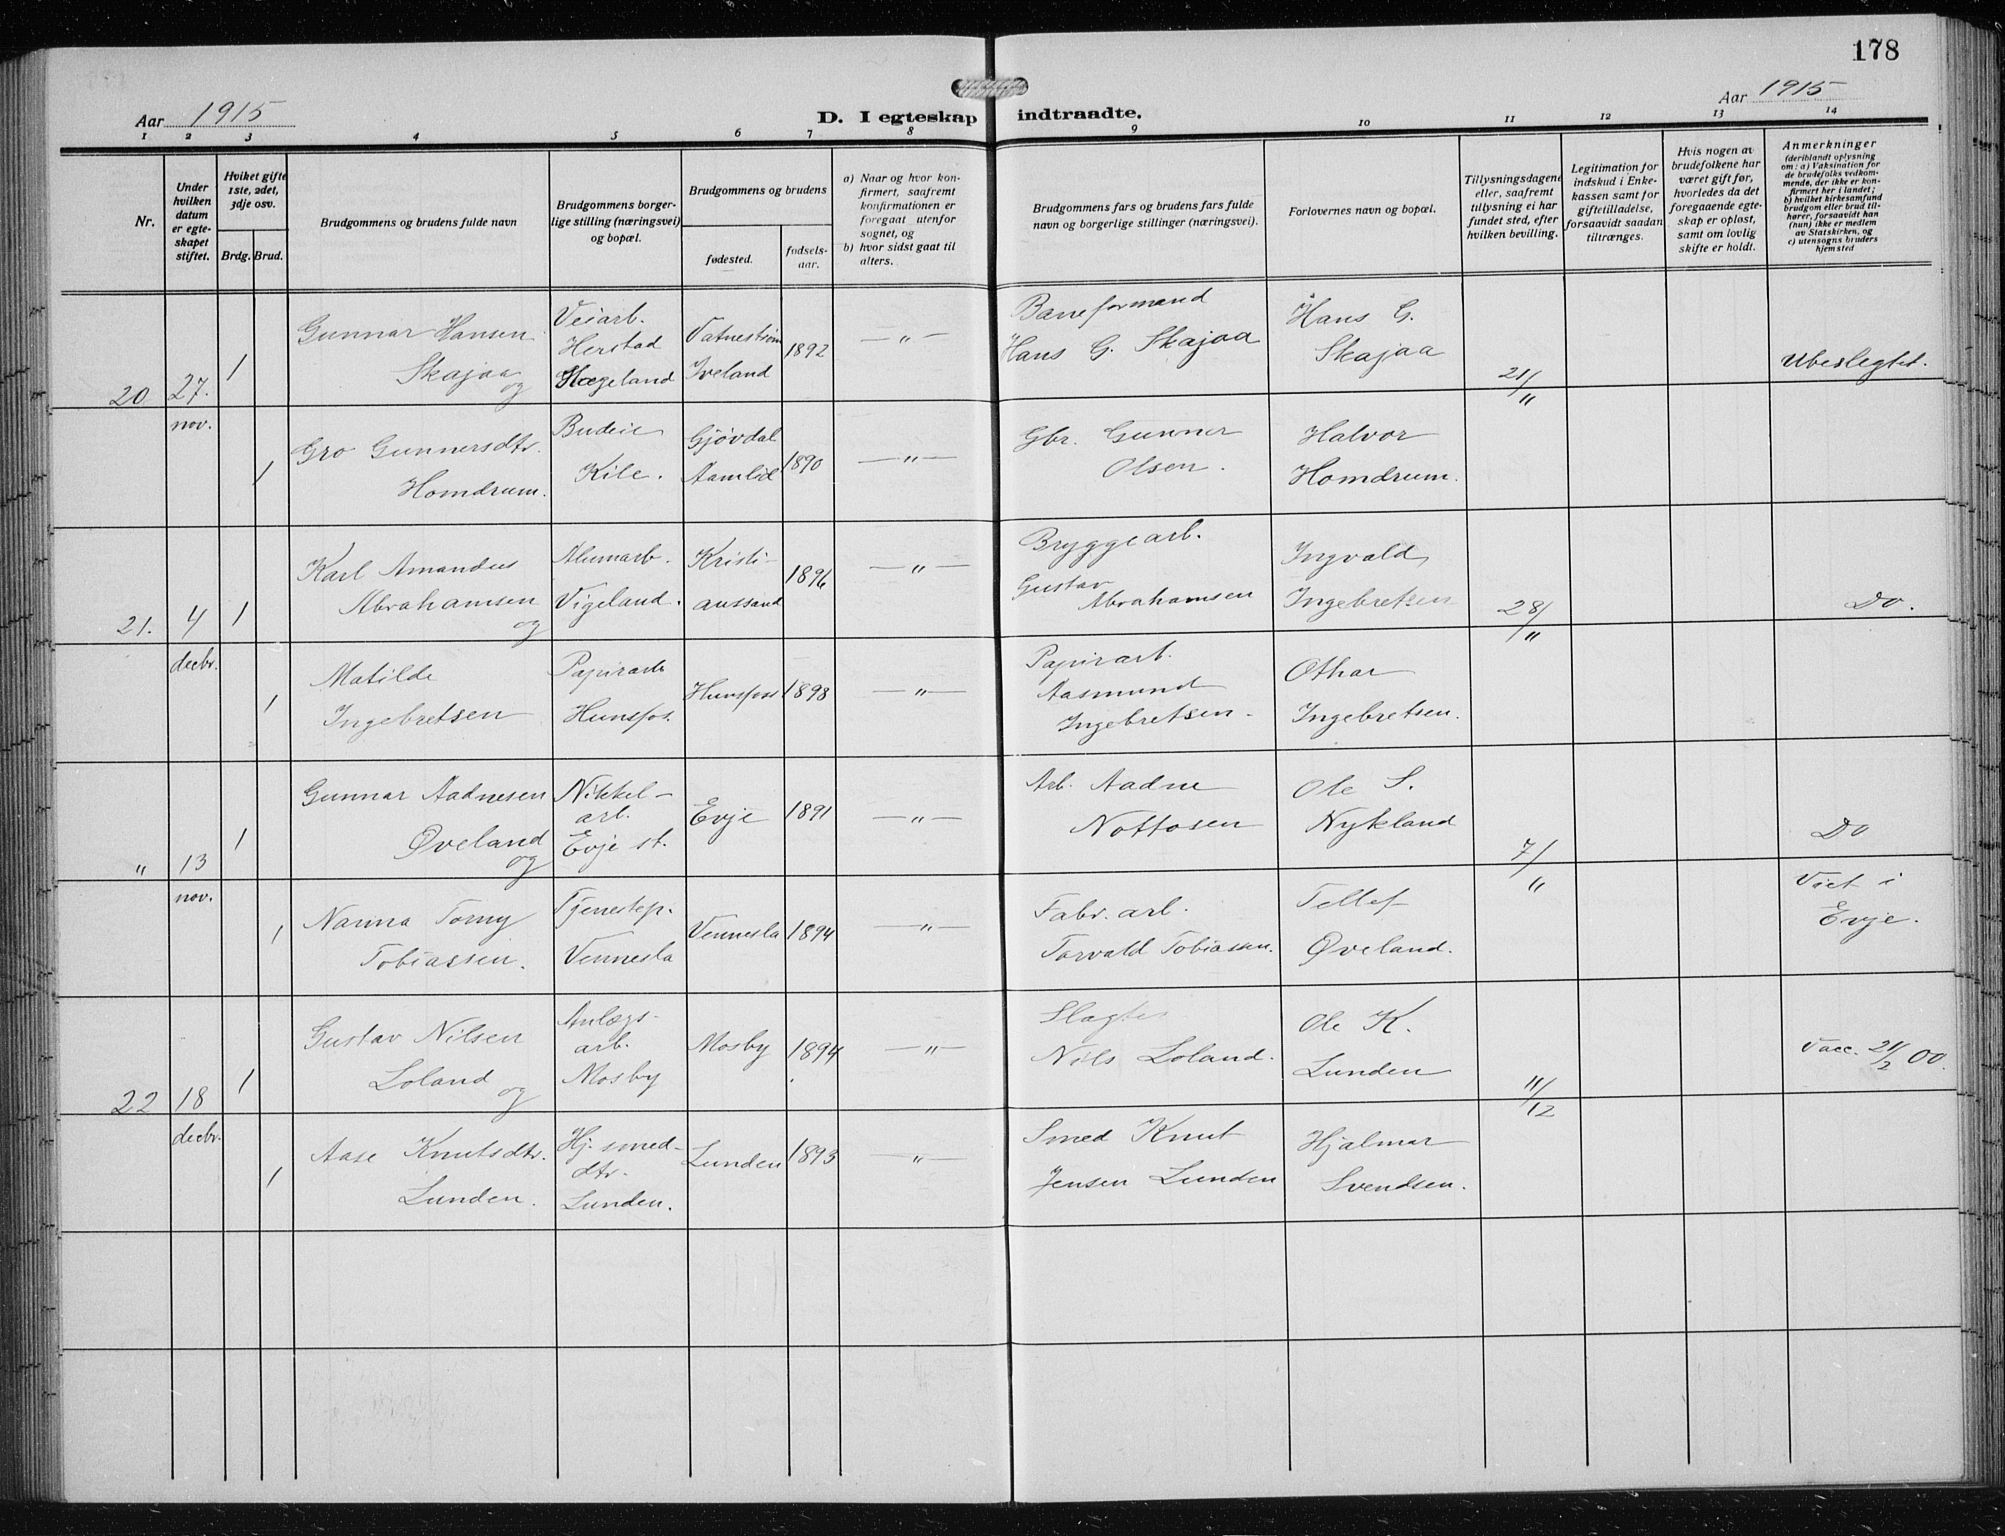 178
Aar 1915
D. I egteskap indtraadte.
Aar 1915
1 2 3 4 5 6 7 8 9 10 11 12 13 14
Nr.
Under hvilken datum er egte-skapet stiftet.
Hviket gifte 1ste, 2det, 3dje osv.
Brdg. Brud.
Brudgommens og brudens fulde navn
Brudgommens borger-lige stilling (næringsvei) og bopæl.
Brudgommens og brudens
fødested.
fødsels-aar.
a) Naar og hvor kon-firmert, saafremt konfirmationen er foregaat utenfor sognet, og
b) hvor sidst gaat til alters.
Brudgommens fars og brudens fars fulde navn og borgerlige stillinger (næringsvei).
Forlovernes navn og bopæl.
Tillysningsdagene eller, saafremt tillysning ei har fundet sted, efter hvilken bevilling.
Legitimation for indskud i Enke-kassen samt for giftetilladelse, forsaavidt saadan tiltrænges.
Hvis nogen av brudefolkene har været gift før, hvorledes da det foregaaende egte-skap er opløst, samt om lovlig skifte er holdt.
Anmerkninger
(deriblandt oplysning om: a) Vaksination for de brudefolks vedkom-mende, der ikke er kon-firmert her i landet; b) hvilket kirkesamfund brudgom eller brud til-hører, forsaavidt han (hun) ikke er medlem av Statskirken, og c) utensogns bruders hjemsted
20. 27. nov. 1
Gunnar Hansen
Skajaa
og
Veiarb.
Herstad
Hægeland
Vatnestrøm
Iveland
1892
— " —
Baneformand
Hans G. Skajaa
Hans G.
Skajaa
21/"
Ubeslegtet.
1
Gro Gunnersdtr.
Homdrum.
Budeie
Kile.
Gjøvdal
Aamlid
1890
— " —
Gbr. Gunner
Olsen.
Halvor
Homdrum.
21. 4 decbr. 1
Karl Amandus
Abrahamsen
og
Alumarb.
Vigeland.
Kristi-
anssand
1896
— " —
Bryggearb.
Gustav
Abrahamsen
Ingvald
Ingebretsen
28/"
Do.
1
Matilde
Ingebretsen
Papirarb
Hunsfos.
Hunsfoss
1898
— " —
Papirarb.
Aasmund
Ingebretsen.
Othar
Ingebretsen.
" 13 nov. 1
Gunnar Aadnesen
Øveland
og
Nikkel-
arb.
Evje st.
Evje
1891
— " —
Arb. Aadne
Nottosen
Ole S.
Nykland
7/"
Do
1
Nanna Tomy
Tobiassen.
Tjenestep.
Vennesla
Vennesla
1894
— " —
Fabr. arb.
Torvald Tobiassen.
Tellef
Øveland.
Viet i
Evje.
22 18 decbr. 1
Gustav Nilsen
Loland
og
Anlægs-
arb.
Mosby
Mosby
1894
— " —
Slagter
Nils Loland.
Ole K.
Lunden
11/12
Vacc. 21/2 00.
1
Aase Knutsdtr.
Lunden.
Hj. smed-
dtr.
Lunden.
Lunden
1893
— " —
Smed Knut
Jensen Lunden
Hjalmar
Svendsen.